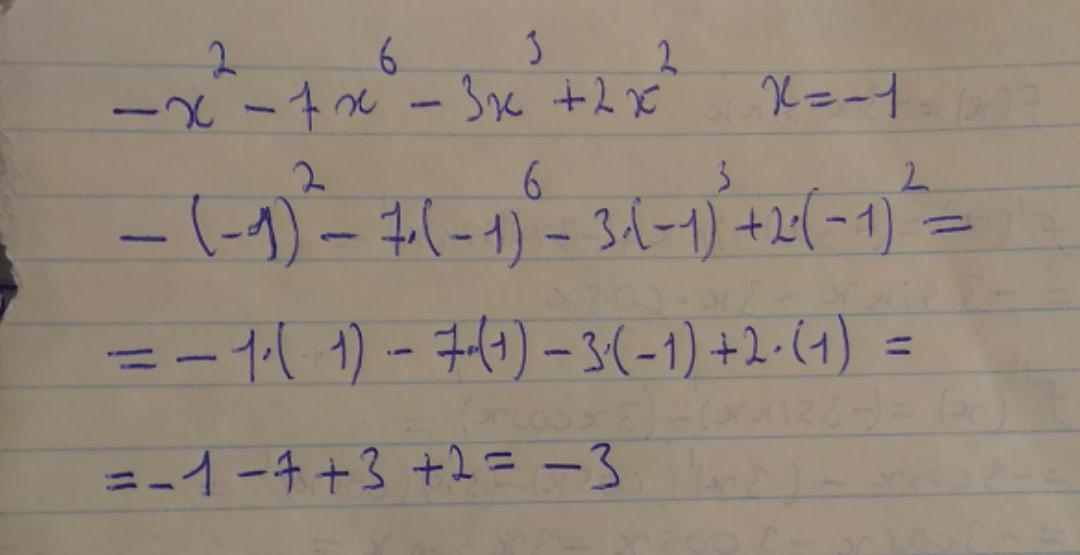 -x² - 7x⁶ - 3x³ + 2x² x = -1
-(-1)² - 7·(-1)⁶ - 3·(-1)³ + 2·(-1)² =
= -1·( 1) - 7·(1) - 3·(-1) + 2·(1) =
= -1 - 7 + 3 + 2 = -3